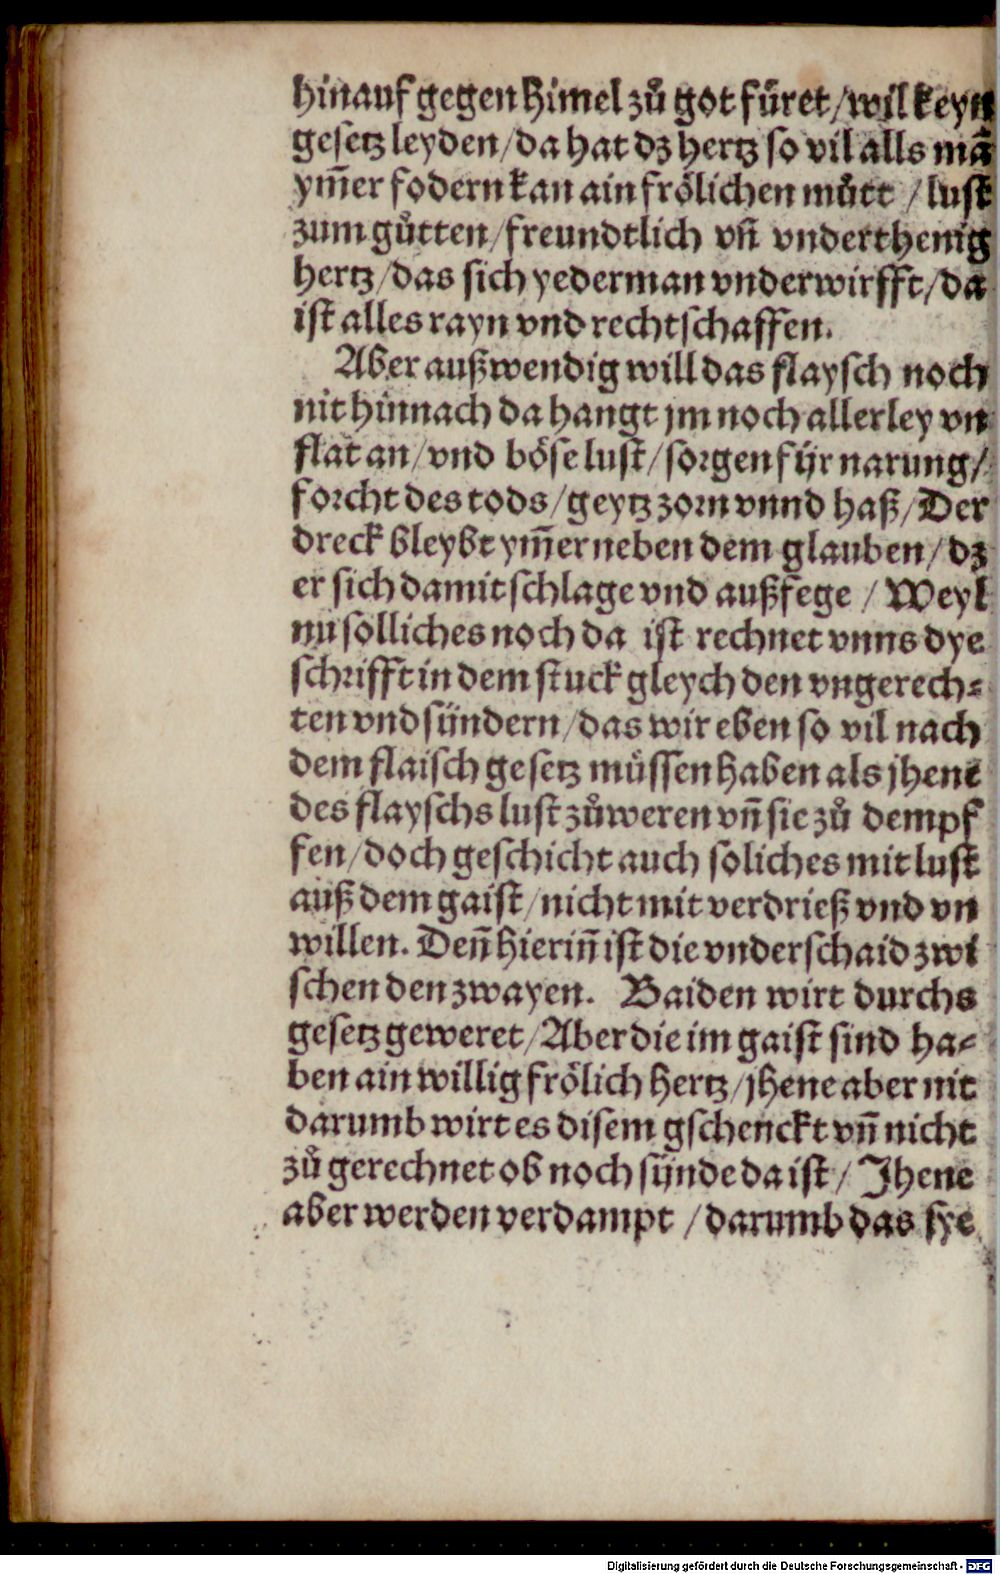 hinauf gegen Himel zů got füret / wil keyn
gesetz leyden / da hat dz hertz so vil alls mã
ym̃er fodern kan ain frölichen můtt / lust
zum gůtten / freundtlich vñ vnderthenig
hertz / das sich yederman vnderwirfft / da
ist alles rayn vnd rechtschaffen.
Aber außwendig will das flaysch noch
nit hinnach da hangt jm noch allerley vn
flat an / vnd böse lust / sorgen für narung /
forcht des tods / geytz zorn vnnd haß / Der
dreck bleybt ym̃er neben dem glauben / dz
er sich damit schlage vnd außfege / Weyl
nu solliches noch da ist rechnet vnns dye
schrifft in dem stuck gleych den vngerech⸗
ten vnd sündern / das wir eben so vil nach
dem flaisch gesetz müssen haben als jhene
des flayschs lust zůweren vñ sie zů dempf
fen / doch geschicht auch soliches mit lust
auß dem gaist / nicht mit verdrieß vnd vn
willen. Deñ hieriñ ist die vnderschaid zwi
schen den zwayen. Baiden wirt durchs
gesetz geweret / Aber die im gaist sind ha⸗
ben ain willig frölich hertz / jhene aber nit
darumb wirt es disem gschenckt vñ nicht
zů gerechnet ob noch sünde da ist / Jhene
aber werden verdampt / darumb das sye
Digitalisierung gefördert durch die Deutsche Forschungsgemeinschaft - DFG